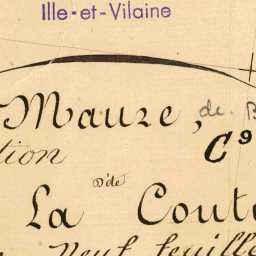 Ille-et-Vilaine
Maure, de B
tion C⁹
D'de
La Cout
Neuf feuille